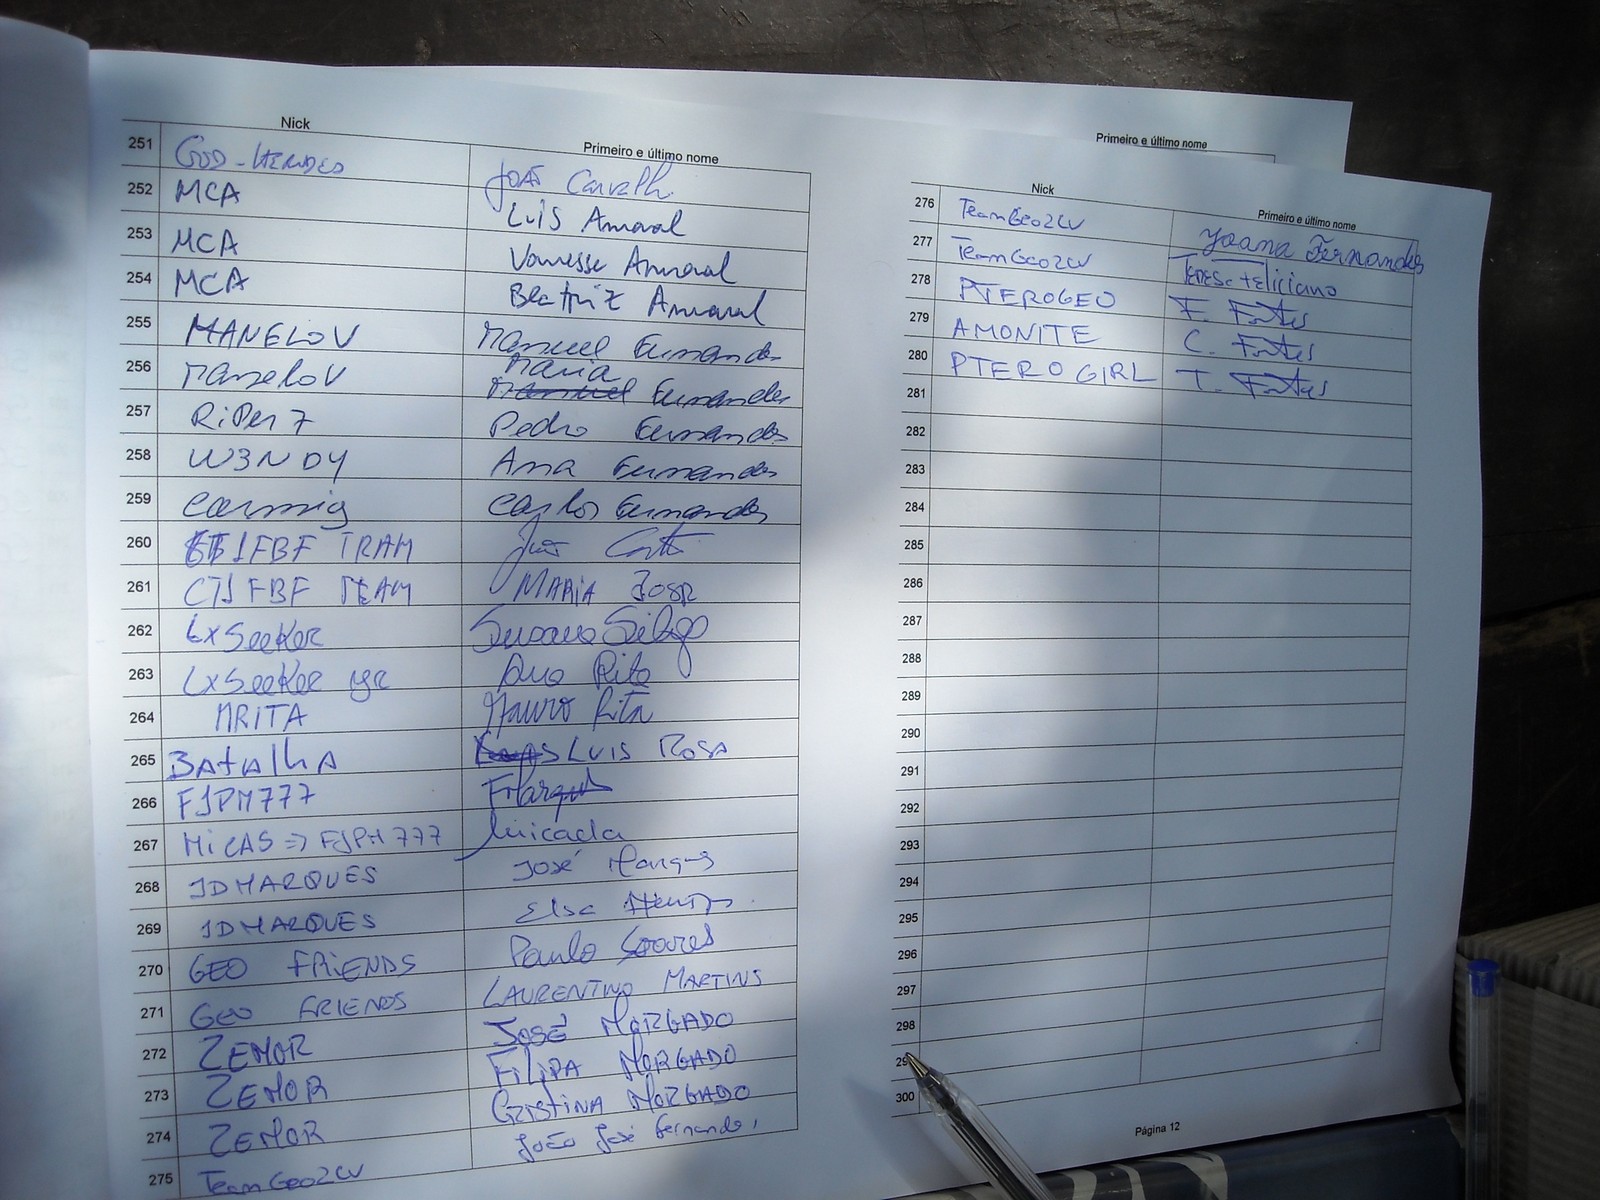 Nick Primeiro e último nome
251 GOD-HERMES João Carvalh
252 MCA Luis Amaral
253 MCA Vanessa Amaral
254 MCA Beatriz Amaral
255 MANELOV Manuel Fernandes
256 ManeloV Maria Fernandes
257 RiPer7 Pedro Fernandes
258 W3NDY Ana Fernandes
259 carmig Carlos Fernandes
260 CT1FBF TEAM João Costa
261 CT1FBF TEAM MARIA JOSE
262 LxSeeker Susana
263 LxSeeker Jr Ana Rita
264 MRITA Mauro Rita
265 BAtAlhA LUIS ROSA
266 FJPM777 FMarques
267 MiCAS => FJPM777 Micada
268 JDMARQUES José Marques
269 JDMARQUES Elsa
270 GEO FRIENDS Paulo Soares
271 GEO FRIENDS LAURENTINO MARTINS
272 ZEMOR JOSÉ MORGADO
273 ZEMOR FILIPA MORGADO
274 ZEMOR CRISTINA MORGADO
275 TeamGeo2CV João José Fernandes
Primeiro e último nome
Nick Primeiro e último nome
276 TeamGeo2CV Joana Fernandes
277 TeamGeo2CV Teresa Feliciano
278 PTEROGEO F. Fortes
279 AMONITE C. Fortes
280 PTEROGIRL T. Fortes
281
282
283
284
285
286
287
288
289
290
291
292
293
294
295
296
297
298
29
300
Página 12